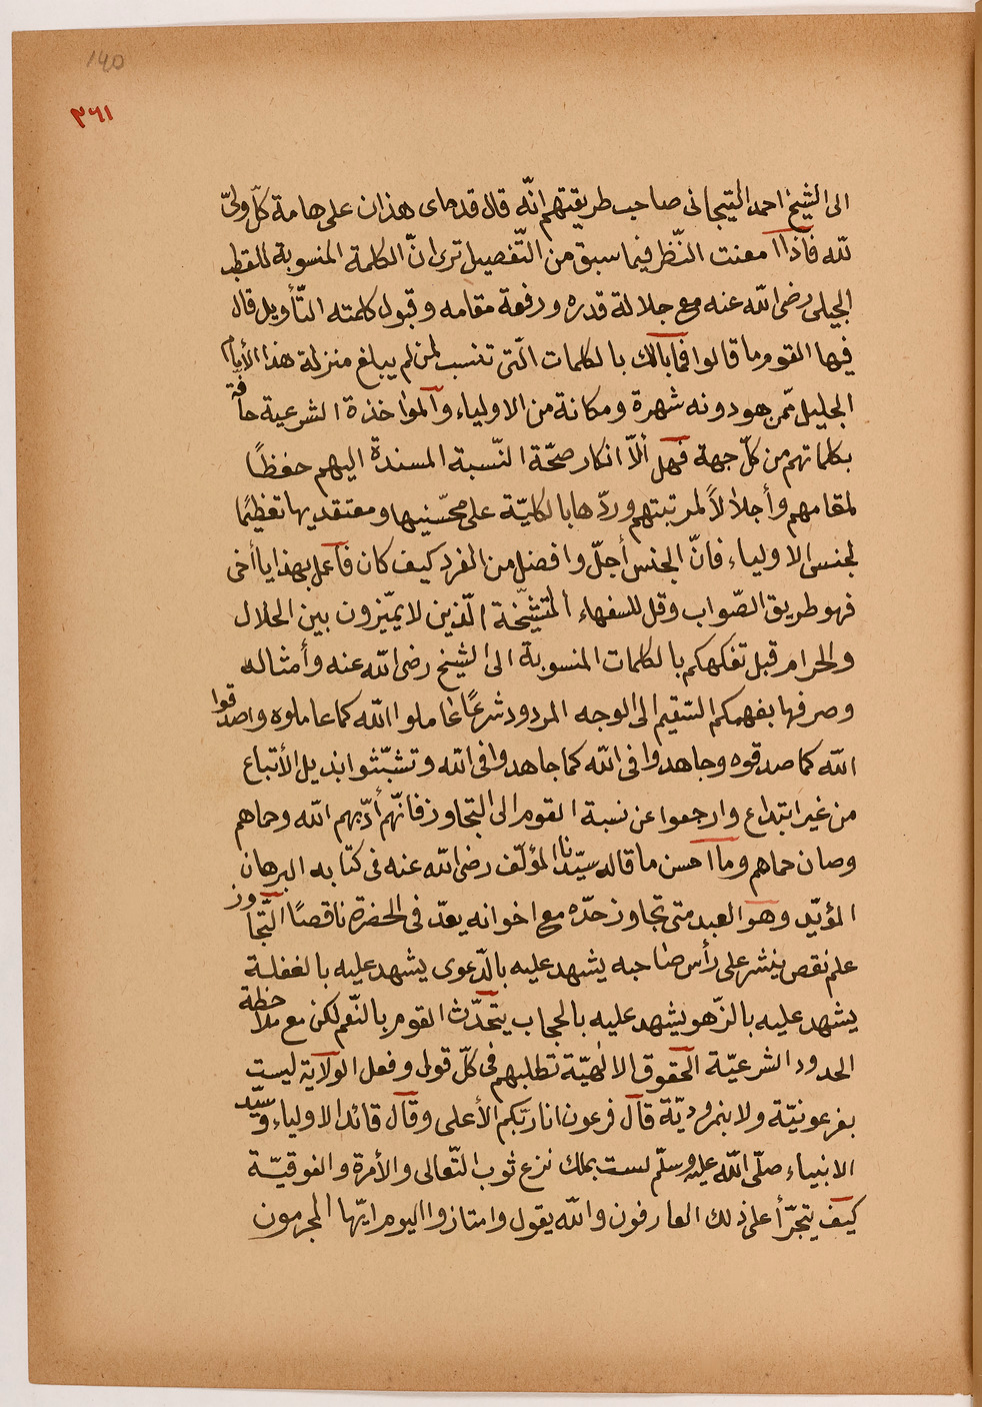 140
٣٦١
الى الشيخ احمد التيجانى صاحب طريقتهم انّه قال قدماى هذان على هامة كلّ ولىّ
للّه فاذا امعنت النّظر فيما سبق من التّفصيل ترى انّ الكلمة المنسوبة للقطب
الجيلى رضى اللّه عنه مع جلالة قدره ورفعة مقامه وقبول كلمته التّأويل قال
فيها القوم ما قالوا فما بالك بالكلمات الّتى تنسب لمن لم يبلغ منزلة هذا الأمام
الجليل ممّن هو دونه شهرة ومكانة من الاولياء والمواخذة الشرعية حآفة
بكلماتهم من كلّ جهة فهل ألاّ انكار صحّة النّسبة المسندة اليهم حفظًا
لمقامهم وأجلالاً لمرتبتهم وردّها بالكليّة على محسّنيها ومعتقديها تعظيمًا
لجنس الاولياء فانّ الجنس أجلّ وافضل من الفرد كيف كان فاعمل بهذا يا أخى
فهو طريق الصّواب وقل للسفهاء المتشيّخة الّذين لا يميّزون بين الحلال
والحرام قبل تفكهكم بالكلمات المنسوبة الى الشيخ رضى اللّه عنه وأمثاله
وصرفها بفهمكم السّقيم الى الوجه المردود شرعًا عاملوا اللّه كما عاملوه واصدقوا
اللّه كما صدقوه وجاهدوا فى اللّه كما جاهدوا فى اللّه وتشبّثوا بذيل الأتباع
من غير ابتداع وارجعوا عن نسبة القوم الى التجاوز فانّهم أدّبهم اللّه وحماهم
وصان حماهم وما احسن ما قاله سيّدنا المؤلّف رضى اللّه عنه فى كتابه البرهان
المؤيّد وهو العبد متى تجاوز حدّه مع اخوانه يعدّ فى الحضرة ناقصًا التّجاوز
علم نقص ينشر على رأس صاحبه يشهد عليه بالدّعوى يشهد عليه بالغفلة
يشهد عليه بالزّهو يشهد عليه بالحجاب يتحدّث القوم بالنّعم لكن مع ملاحظة
الحدود الشرعيّة الحقوق الالٰهيّة تطلبهم فى كلّ قول وفعل الولاية ليست
بفرعونيّة ولا بنمروديّة قال فرعون انا ربّكم الأعلى وقال قائد الاولياء وسيّد
الانبياء صلّى اللّه عليه وسلّم لست بملك نزع ثوب التّعالى والأمرة والفوقيّة
كيف يتجرّأ على ذلك العارفون واللّه يقول وامتازوا اليوم ايّها المجرمون